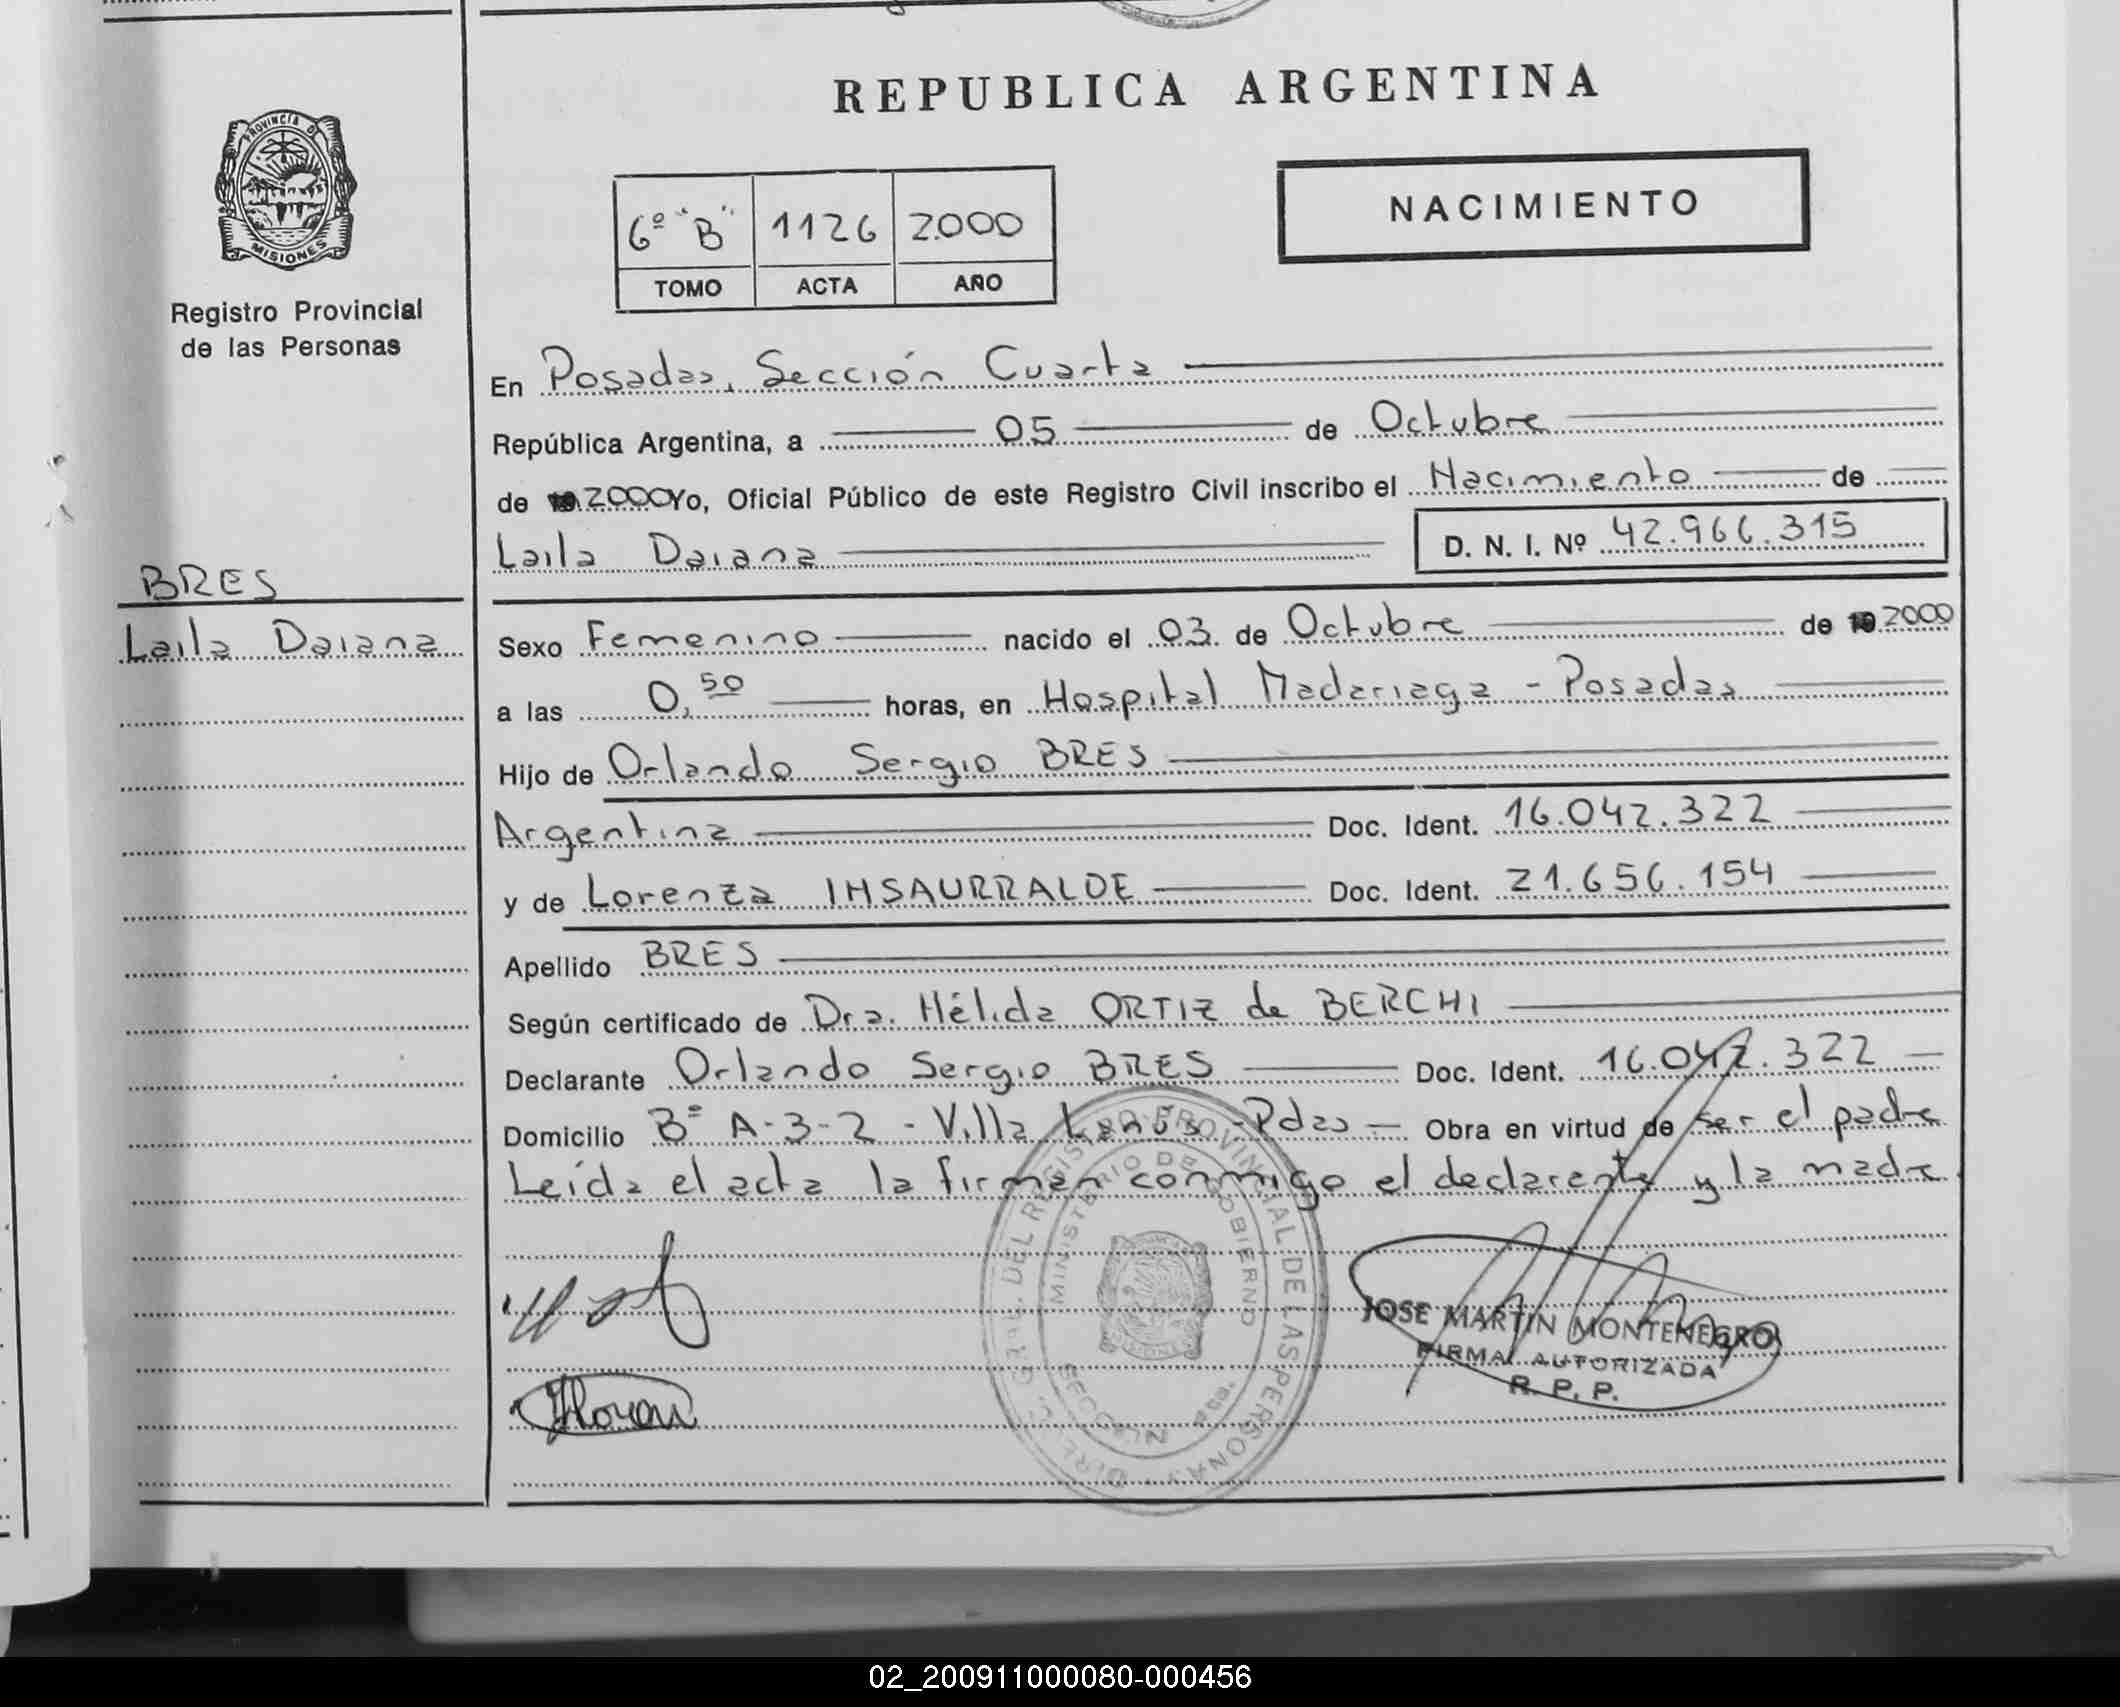 REPUBLICA ARGENTINA
PROVINCIA DE
MISIONES
Registro Provincial
de las Personas
6º "B" 1126 2000
TOMO ACTA AÑO
NACIMIENTO
En Posadas, Sección Cuarta
República Argentina, a 05 de Octubre
de 2000 Yo, Oficial Público de este Registro Civil inscribo el Nacimiento de
Laila Daiana D. N. I. Nº 42.966.315
BRES
Laila Daiana
Sexo Femenino nacido el 03 de Octubre de 2000
a las 0,50 horas, en Hospital Madariaga - Posadas
Hijo de Orlando Sergio BRES
Argentina Doc. Ident. 16.042.322
y de Lorenza INSAURRALDE Doc. Ident. 21.656.154
Apellido BRES
Según certificado de Dra. Hélida ORTIZ de BERCHI
Declarante Orlando Sergio BRES Doc. Ident. 16.042.322
Domicilio Bº A-3-2 - Villa Lanús - Pdas Obra en virtud de ser el padre
Leída el acta la firman conmigo el declarante y la madre
DIREC. GRAL. DEL REGISTRO PROVINCIAL DE LAS PERSONAS
MINISTERIO DE GOBIERNO
JOSE MARTIN MONTENEGRO
FIRMA AUTORIZADA
R. P. P.
02_200911000080-000456